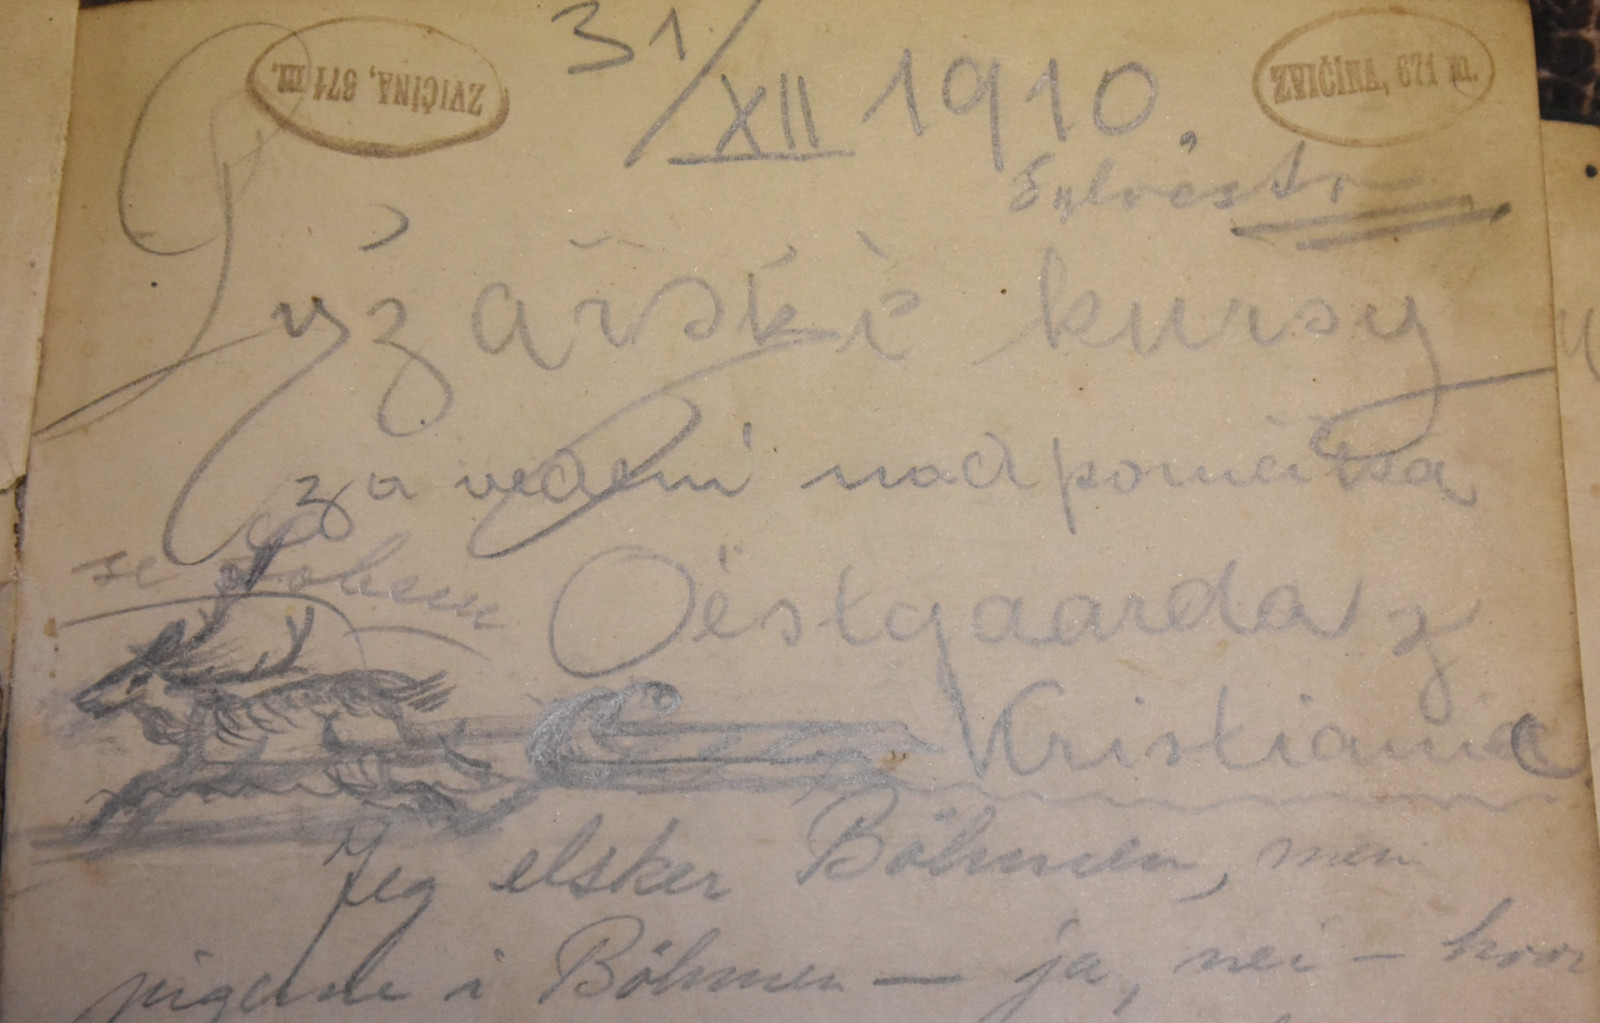 ZVIČINA, 671 m.
31/XII 1910.
ZVIČINA, 671 m.
Sylvestr
Lyžařské kursy
za vedení nadporučíka
se sobem
Oëstgaarda z
Kristianie
Jeg elsker Böhmen, men
pigerne i Böhmen — ja, nei — hvor